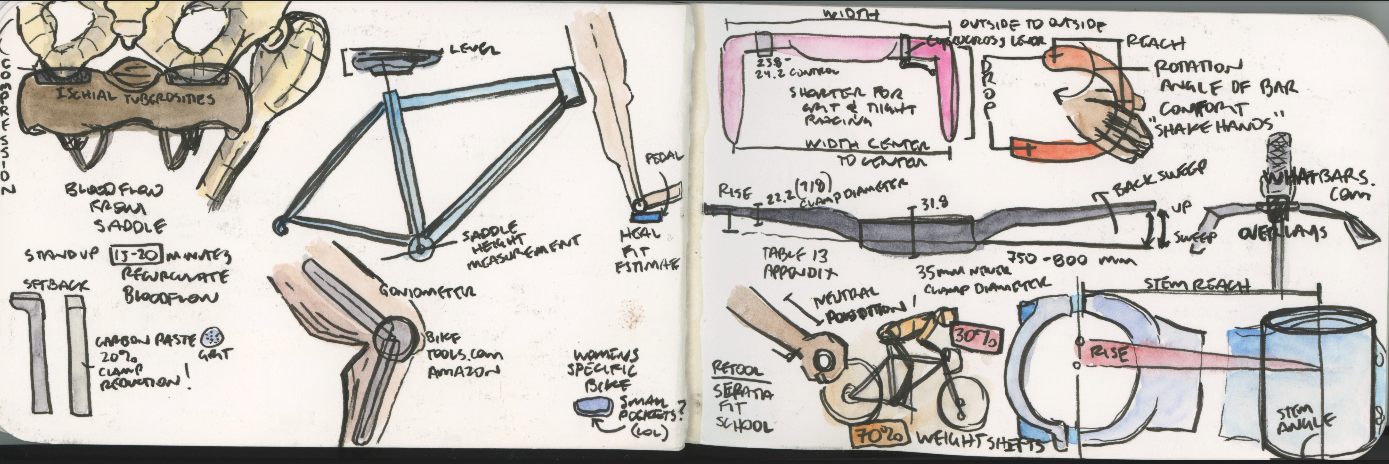 COMPRESSION
ISCHIAL TUBEROSITIES
BLOOD FLOW
FROM
SADDLE
STAND UP 15-20 MINUTES
RECIRCULATE
BLOODFLOW
SETBACK
CARBON PASTE
20%
CLAMP
REDUCTION!
GRIT
LEVEL
SADDLE
HEIGHT
MEASUREMENT
GONIOMETER
BIKE
TOOLS.COM
AMAZON
PEDAL
HEAL
FIT
ESTIMATE
WOMENS
SPECIFIC
BIKE
SMALL
POCKETS?
(LOL)
WIDTH
OUTSIDE TO OUTSIDE
CYCLOCROSS LEVER
23.8-
24.2 CONTROL
SHORTER FOR
CRIT & TIGHT
RACING
WIDTH CENTER
TO CENTER
DROP
REACH
ROTATION
ANGLE OF BAR
COMFORT
"SHAKE HANDS"
RISE
22.2 (7/8)
CLAMP DIAMETER
31.8
BACKSWEEP
UP
SWEEP
WHATBARS.
COM
OVERLAYS
750-800 mm
TABLE 13
APPENDIX
35mm
CLAMP DIAMETER
NEUTRAL
POSITION!
30%
70%
WEIGHT SHIFTS
RETOOL
FIT
SCHOOL
STEM REACH
RISE
STEM
ANGLE